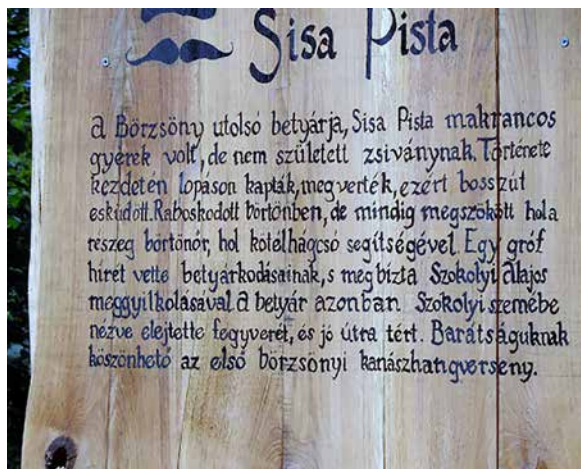 Sisa Pista
a Börzsöny utolsó betyárja, Sisa Pista makrancos
gyerek volt, de nem született zsiványnak. Története
kezdetén lopáson kapták, megverték, ezért bosszút
esküdött. Raboskodott börtönben, de mindig megszökött hola
részeg börtönőr, hol kötélhágcsó segítségével. Egy gróf
hírét vette betyárkodásainak, s megbízta Szokolyi Alajos
meggyilkolásával. A betyár azonban Szokolyi szemébe
nézve elejtette fegyverét, és jó útra tért. Barátságuknak
köszönhető az első börzsönyi kanászhangverseny.